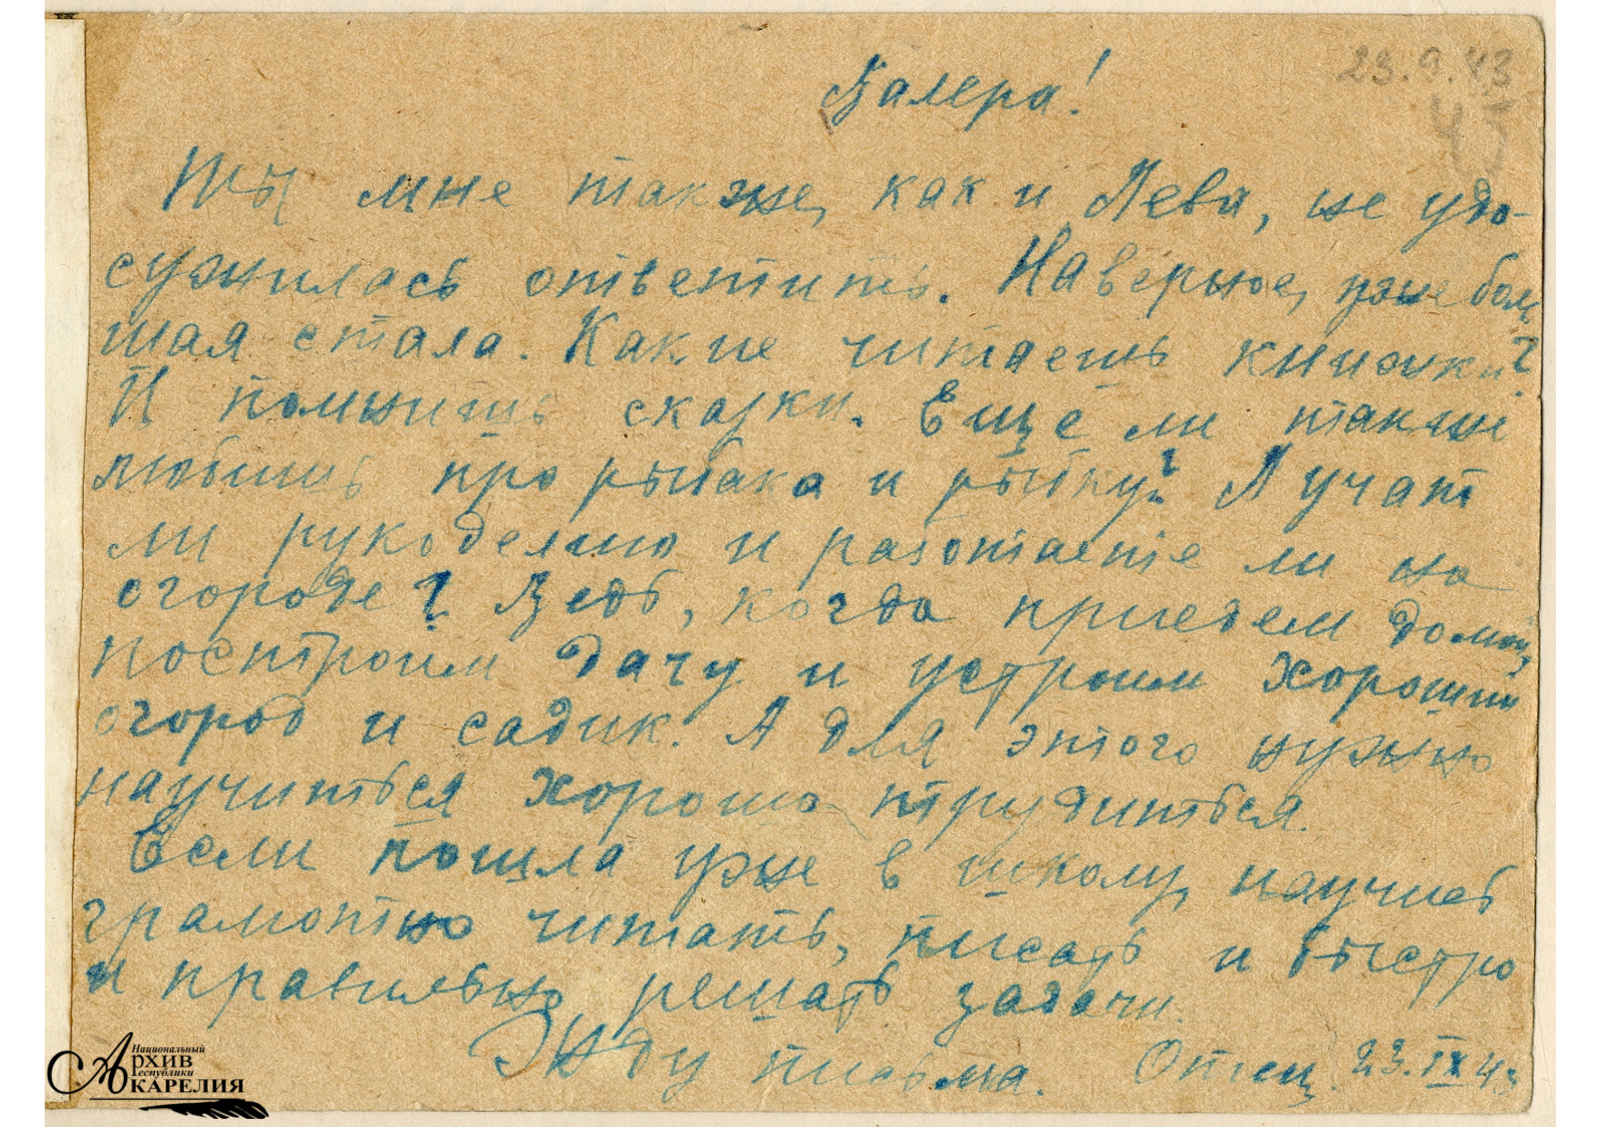 23.9.43
45
Валера!
Ты мне также, как и Лева, не удо-
сужилась ответить. Наверное, уже боль
шая стала. Какие читаешь книжки?
И помнишь сказки. Еще ли также
любишь про рыбака и рыбку? А учат
ли рукоделию и работаете ли на
огороде? Ведь, когда приедем домой,
построим дачу и устроим хороший
огород и садик. А для этого нужно
научиться хорошо трудиться.
Если пошла уже в школу, научись
грамотно читать, писать и быстро
и правильно решать задачи.
Жду письма. Отец. 23.IX 43
Национальный
Архив
Республики
Карелия